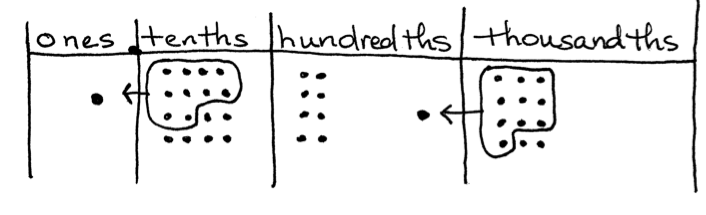 ones . tenths hundredths thousandths